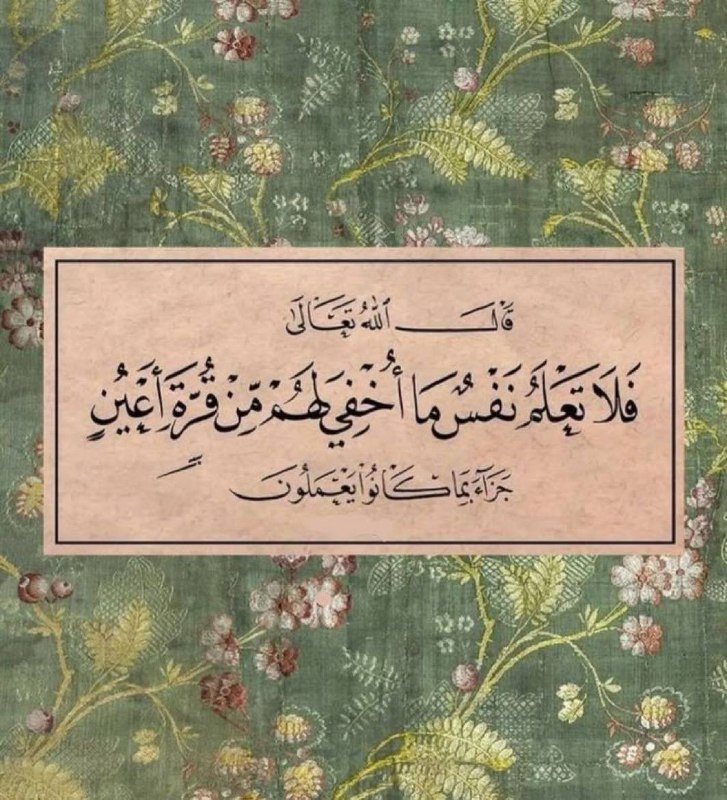 قَالَ اللهُ تَعَالَىٰ
فَلَا تَعْلَمُ نَفْسٌ مَا أُخْفِيَ لَهُمْ مِّنْ قُرَّةِ أَعْيُنٍ
جَزَآءً بِمَا كَانُوا۟ يَعْمَلُونَ